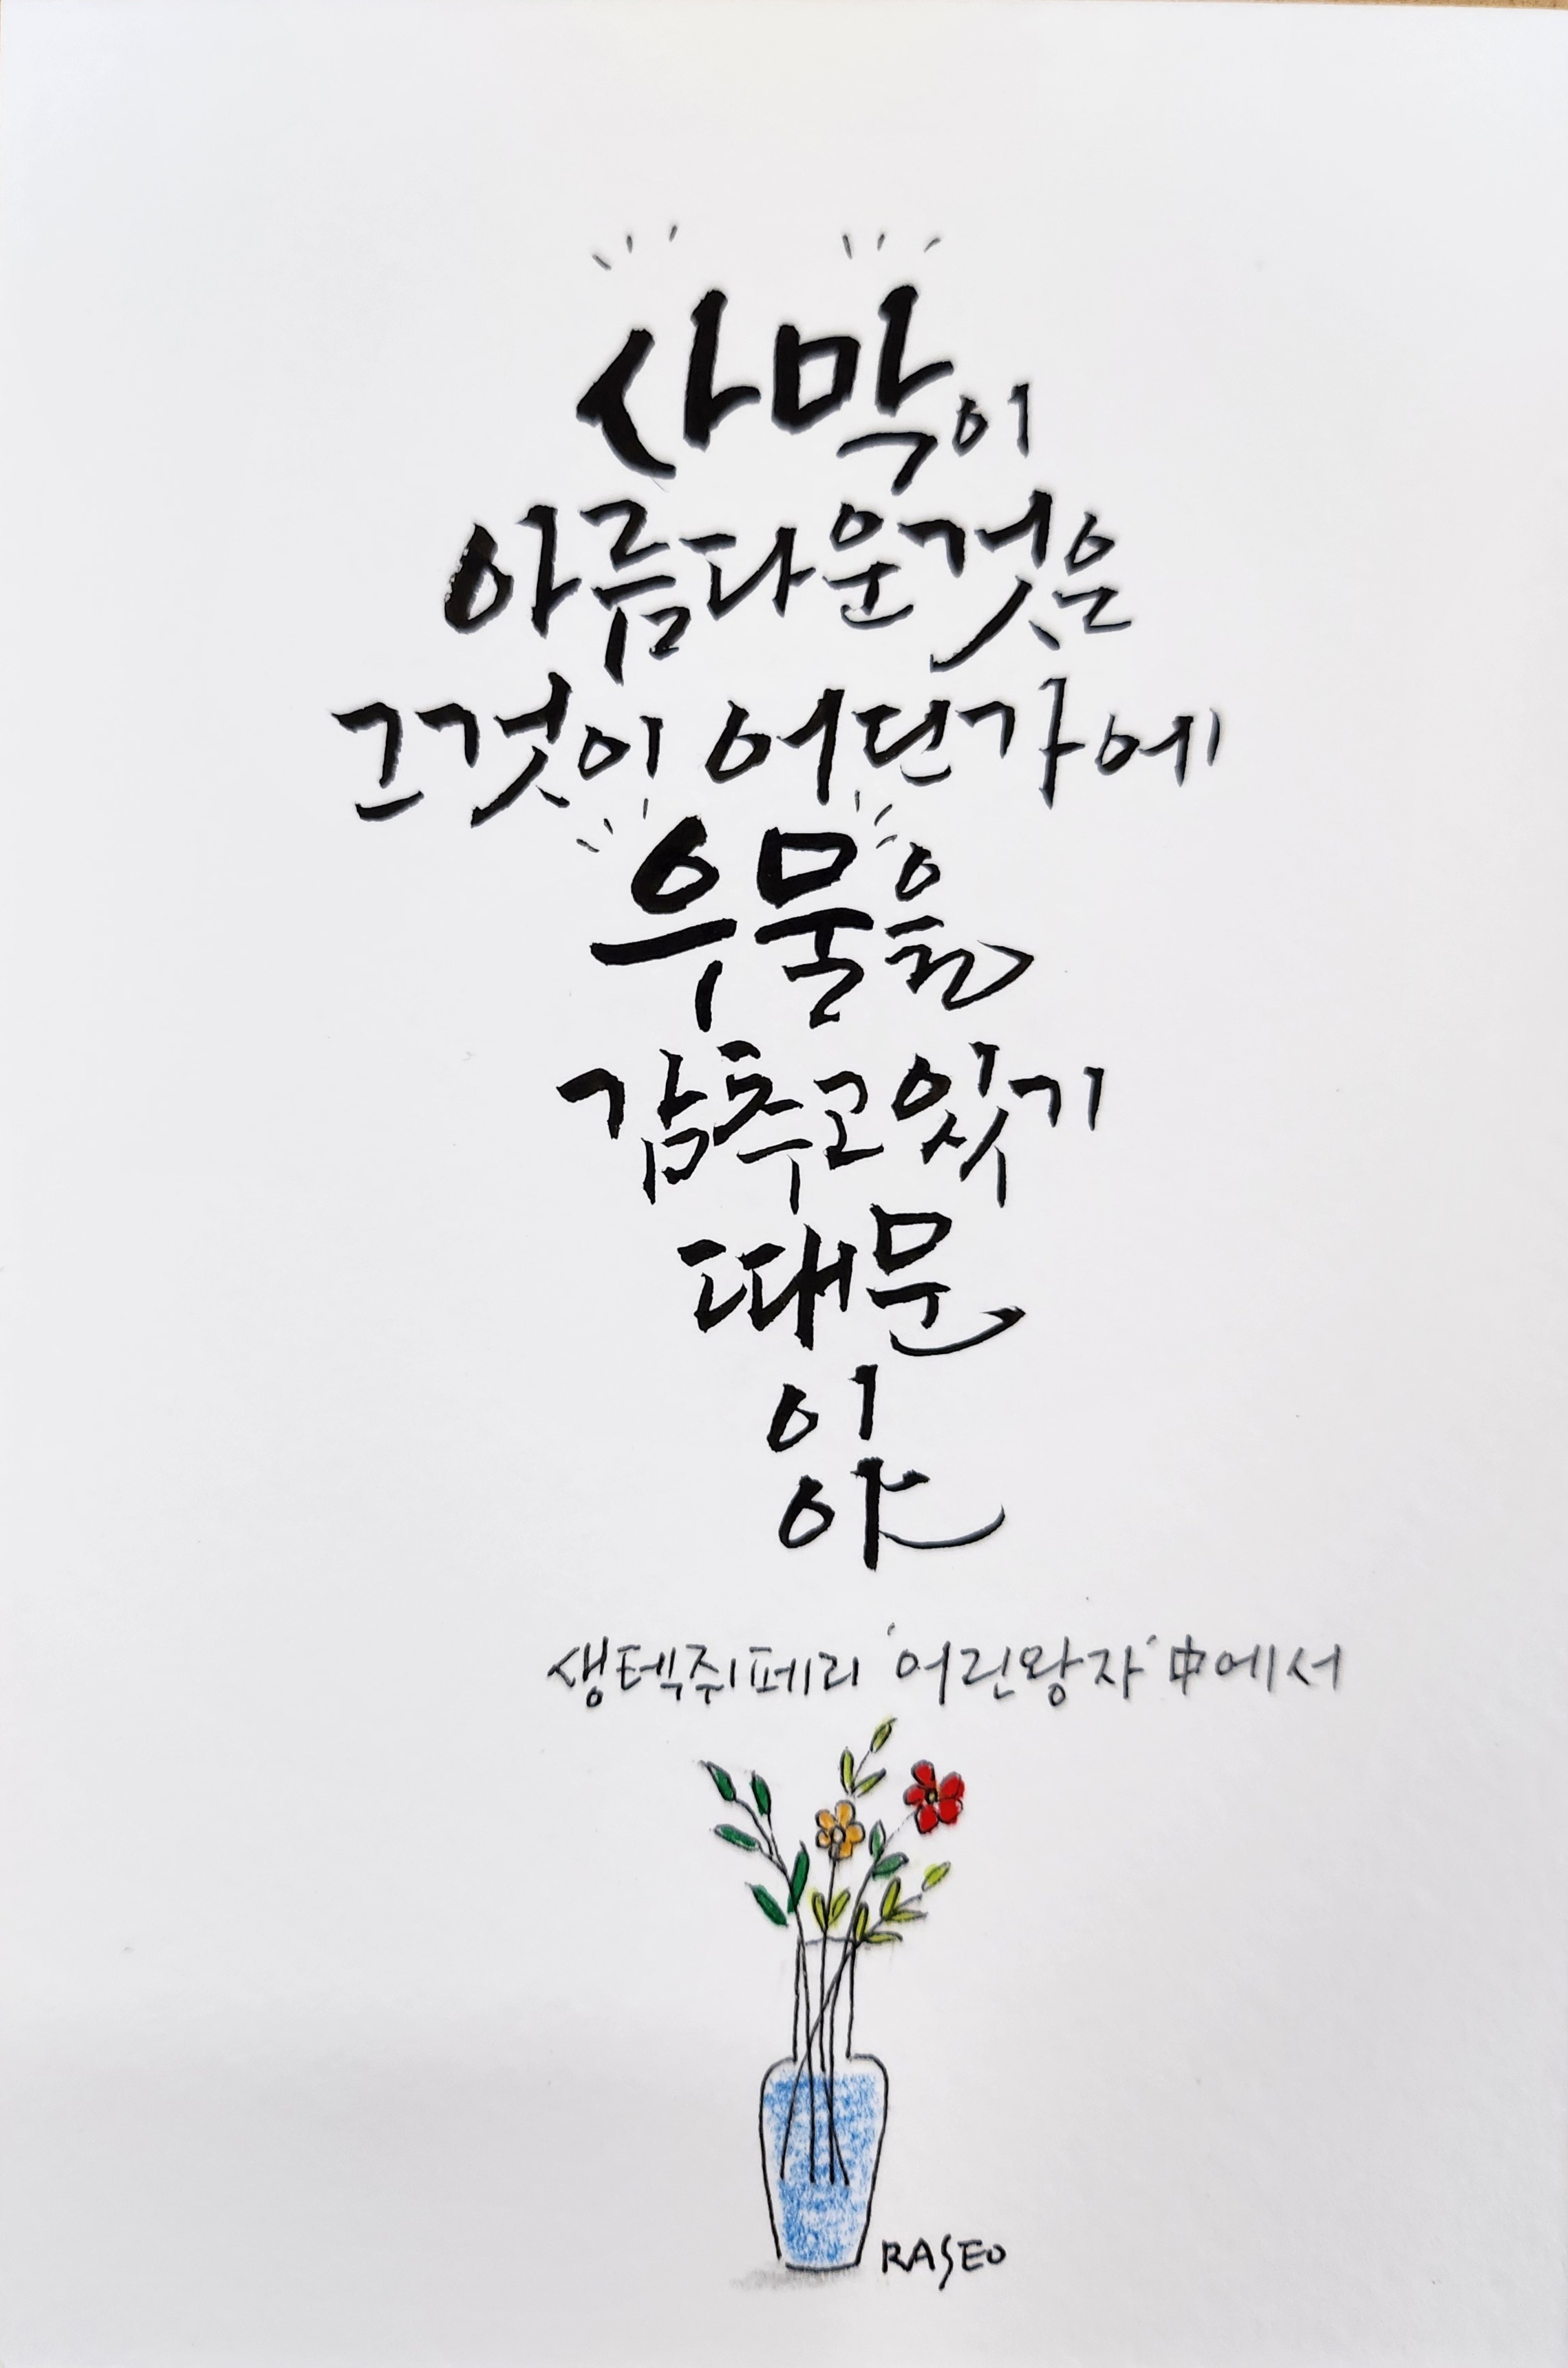 사막이
아름다운것은
그것이 어딘가에
우물을
감추고있기
때문
이
야
생텍쥐페리 '어린왕자' 中에서
RASEO